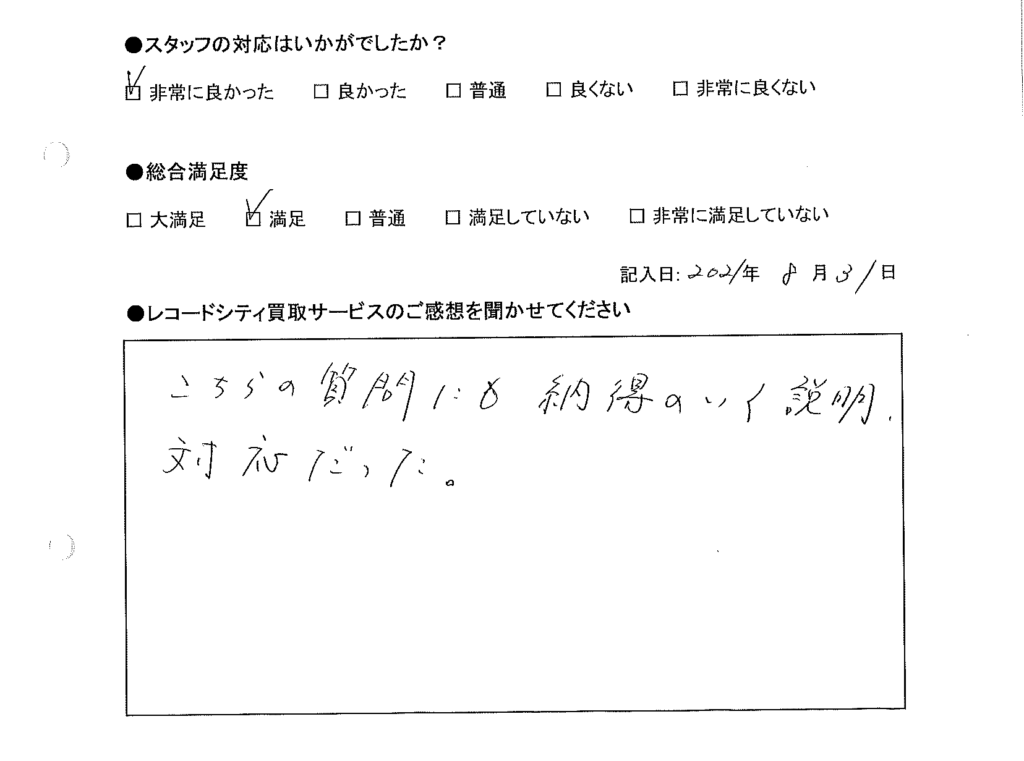 ●スタッフの対応はいかがでしたか？
☑ 非常に良かった □ 良かった □ 普通 □ 良くない □ 非常に良くない
●総合満足度
□ 大満足 ☑ 満足 □ 普通 □ 満足していない □ 非常に満足していない
記入日: 2021年 8月31日
●レコードシティ買取サービスのご感想を聞かせてください
こちらの質問にも納得のいく説明、
対応だった。